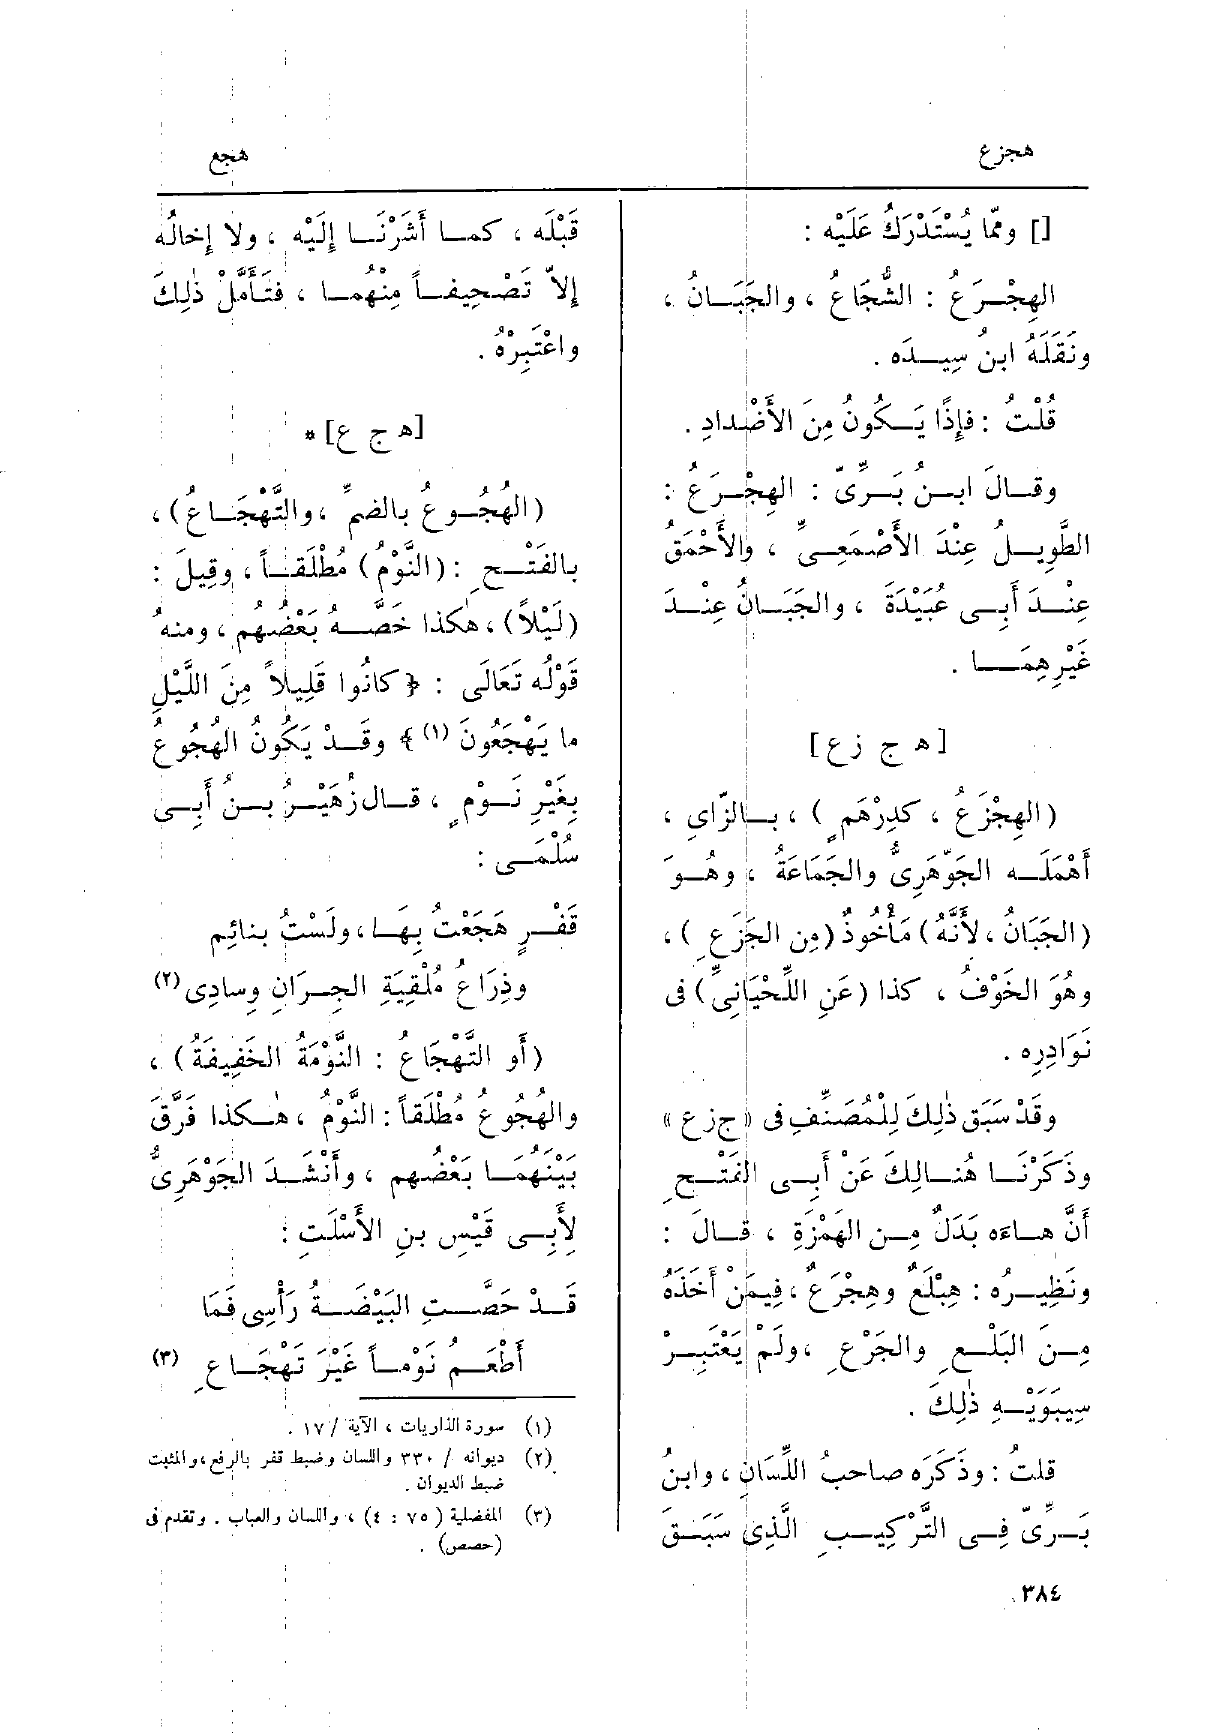 هجزع
هجع
[] وممّا يُسْتَدْرَكُ عَلَيْه :
الهِجْــرَعُ : الشُّجَاعُ ، والجَبَــانُ ،
ونَقَلَهُ ابنُ سِيــدَه .
قُلْتُ : فإِذًا يَــكُونُ مِنَ الأَضْدادِ .
وقــالَ ابــنُ بَــرِّىّ : الهِجْــرَعُ :
الطَّوِيــلُ عِنْدَ الأَصْمَعِــىِّ ، والأَحْمَقُ
عِنْــدَ أَبِــى عُبَيْدَةَ ، والجَبَــانُ عِنْــدَ
غَيْرِهِمَــــا .
[ ه ج ز ع]
(الهِجْزَعُ ، كدِرْهَمٍ ) ، بــالزّاىِ ،
أَهْمَلَــه الجَوْهَرِىُّ والجَمَاعَةُ ، وهُــوَ
(الجَبَانُ ، لأَنَّهُ) مَأْخُوذٌ (مِن الجَزَعِ ) ،
وهُوَ الخَوْفُ ، كذا (عَنِ اللِّحْيَانِىِّ) فى
نَوَادِرِه .
وقَدْ سَبَق ذٰلِكَ لِلْمُصَنِّفِ فى «ج ز ع »
وذَكَرْنَــا هُنــالِكَ عَنْ أَبِــى الفَتْــحِ
أَنَّ هــاءَه بَدَلٌ مِــن الهَمْزَةِ ، قــالَ :
ونَظِيــرُه : هِبْلَعٌ وهِجْرَعٌ ، فِيمَنْ أَخَذَهُ
مِــنَ البَلْــعِ والجَرْعِ ، ولَمْ يَعْتَبِــرْ
سِيبَوَيْــهِ ذٰلِكَ .
قلتُ : وذَكَرَه صاحبُ اللِّسَانِ ، وابنُ
بَــرِّىّ فِــى التَّرْكِيــبِ الَّذِىْ سَبَــقَ
قَبْلَه ، كمــا أَشَرْنَــا إِلَيْه ، ولا إِخالُه
إِلاّ تَصْحِيفــاً مِنْهُمــا ، فتَأَمَّلْ ذٰلِكَ
واعْتَبِرْهُ .
[ه ج ع] *
(الهُجُــوعُ بالضمِّ ، والتَّهْجَــاعُ) ،
بالفَتْــحِ : (النَّوْمُ) مُطْلَقــاً ، وقِيلَ :
(لَيْلاً) ، هٰكذا خَصَّــهُ بَعْضُهم ، ومنهُ
قَوْلُه تَعَالَى : ﴿ كانُوا قَلِيلاً مِنَ اللَّيْلِ
ما يَهْجَعُونَ (١) ﴾ وقَــدْ يَكُونُ الهُجُوعُ
بِغَيْرِ نَــوْمٍ ، قــال زُهَيْــرُ بــنُ أَبِــى
سُلْمَــى :
قَفْــرٍ هَجَعْتُ بِهَــا ، ولَسْتُ بنائِمٍ
وذِرَاعُ مُلْقِيَةِ الجِــرَانِ وِسادِى (٢)
(أَو التَّهْجَاعُ : النَّوْمَةُ الخَفِيفَةُ) ،
والهُجُوعُ مُطْلَقاً : النَّوْمُ ، هٰــكذا فَرَّقَ
بَيْنَهُمَــا بَعْضُهم ، وأَنْشَــدَ الجَوْهَرِىُّ
لِأَبِــى قَيْسِ بنِ الأَسْلَتِ :
قَــدْ حَصَّــتِ البَيْضَــةُ رَأْسِى فَمَا
أَطْعَــمُ نَوْمــاً غَيْرَ تَهْجَــاعِ (٣)
(١) سورة الذاريات ، الآية / ١٧ .
(٢) ديوانه / ٣٣٠ واللسان وضبط قفر بالرفع ، والمثبت
ضبط الديوان .
(٣) المفضلية ( ٧٥ : ٤) ، واللسان والعباب . وتقدم فى
(حصص) .
٣٨٤